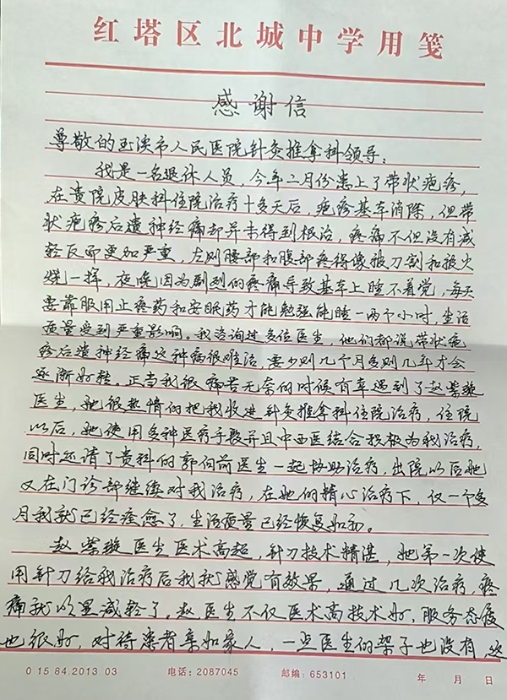 红塔区北城中学用笺
感谢信
尊敬的玉溪市人民医院针灸推拿科领导：
我是一名退休人员，今年二月份患上了带状疱疹，
在贵院皮肤科住院治疗十多天后，疱疹基本消除，但带
状疱疹后遗神经痛却并未得到根治，疼痛不但没有减
轻反而更加严重，左则腰部和腹部疼得像被刀割和被火
烧一样，夜晚因为剧烈的疼痛导致基本上睡不着觉，每天
要靠服用止疼药和安眠药才能勉强能睡一两个小时，生活
质量受到严重影响。我咨询过多位医生，他们都说带状疱
疹后遗神经痛这种病很难治，要少则几个月多则几年才会
逐渐好转。正当我很痛苦无奈的时候有幸遇到了赵紫璇
医生，她很热情的把我收进针灸推拿科住院治疗，住院
以后，她使用多种医疗手段并且中西医结合积极为我治疗，
同时还请了贵科的郭向前医生一起协助治疗，出院以后她
又在门诊部继续对我治疗，在她的精心治疗下，仅一个多
月我就已经痊愈了，生活质量已经恢复如初。
赵紫璇医生医术高超，针刀技术精湛，她第一次使
用针刀给我治疗后我就感觉有效果，通过几次治疗，疼
痛就明显减轻了。赵医生不仅医术高技术好，服务态度
也很好，对待患者亲如家人，一点医生的架子也没有，这
0 15 84.2013.03 电话：2087045 邮编：653101 年 月 日